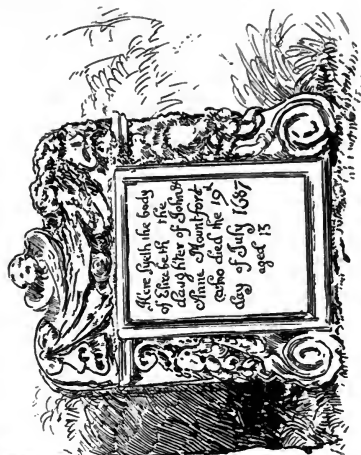 Here lyeth the body
of Elizabeth the
daughter of John &
Anne Mountfort
who died the 19th
day of July 1687
aged 13